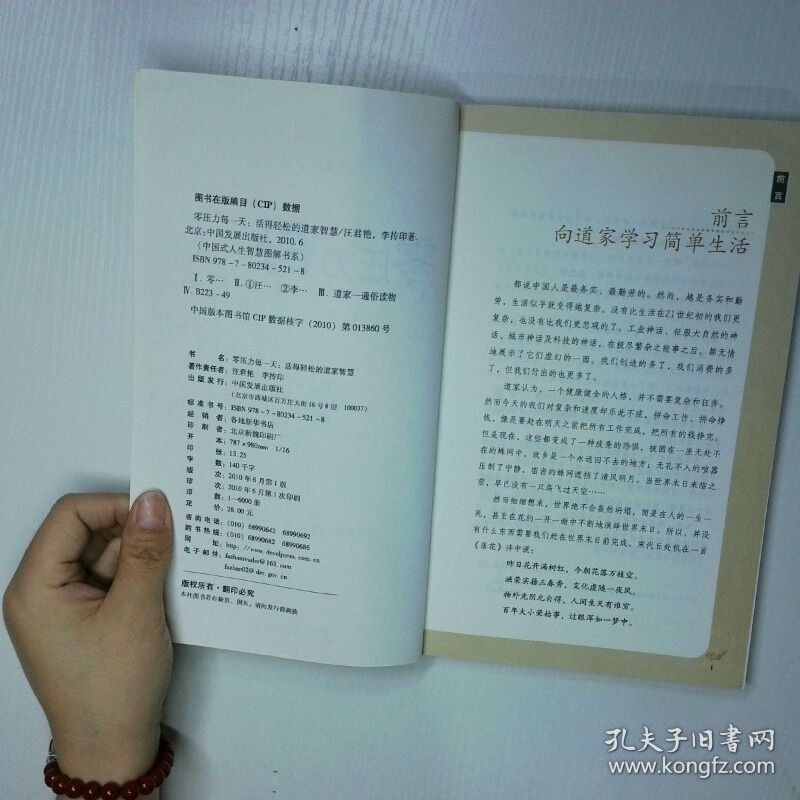 图书在版编目(CIP)数据
零压力每一天:活得轻松的道家智慧/汪君艳,李传印著.
北京:中国发展出版社,2010.6
(中国式人生智慧图解书系)
ISBN 978-7-80234-521-8
Ⅰ.零… Ⅱ.①汪… ②李… Ⅲ.道家—通俗读物
Ⅳ.B223-49
中国版本图书馆CIP数据核字(2010)第013860号
书名:零压力每一天:活得轻松的道家智慧
著作责任者:汪君艳 李传印
出版发行:中国发展出版社
(北京市西城区百万庄大街16号8层 100037)
标准书号:ISBN 978-7-80234-521-8
经销者:各地新华书店
印刷者:北京新魏印刷厂
开本:787×980mm 1/16
印张:13.25
字数:140千字
版次:2010年6月第1版
印次:2010年6月第1次印刷
印数:1—6000册
定价:28.00元
咨询电话:(010)68990642 68990692
购书热线:(010)68990682 68990686
网址:http://www.develpress.com.cn
电子邮件:fazhanreader@163.com
fazhan02@drc.gov.cn
版权所有·翻印必究
本社图书若有缺页、倒页,请向发行部调换
前言
前言
向道家学习简单生活
都说中国人是最务实、最勤劳的。然而,越是务实和勤
劳,生活似乎就变得越复杂。没有比生活在21世纪初的我们更
复杂,也没有比我们更悲观的了。工业神话、征服大自然的神
话、城市神话及科技的神话,在极尽繁杂之能事之后,都无情
地展示了它们虚幻的一面。我们创造的多了,我们消费的多
了,但我们付出的也更多了。
道家认为,一个健康健全的人格,并不需要复杂和狂奔。
然而今天的我们对复杂和速度却乐此不疲,拼命工作、拼命挣
钱,像是要赶在明天之前把所有工作完成,把所有的钱挣完。
但是现在,这些都变成了一种疲惫的恐惧,被困在一座无处不
在的蛛网中,故乡是一个永远回不去的地方;无孔不入的喧嚣
压制了宁静,密密的蛛网遮挡了清风明月。当世界末日来临之
前,早已没有一只鸟飞过天空……
然而细细想来,世界绝不会轰然坍塌,而是在人的一生一
死,甚至在花的一开一谢中不断地演绎世界末日。所以,并没
有什么东西需要我们赶在世界末日前完成。宋代丘处机在一首
《落花》诗中说:
昨日花开满树红,今朝花落万枝空。
滋荣实藉三春秀,变化虚随一夜风。
物外光阴元自得,人间生灭有谁穷。
百年大小荣枯事,过眼浑如一梦中。
i
孔夫子旧书网
www.kongfz.com